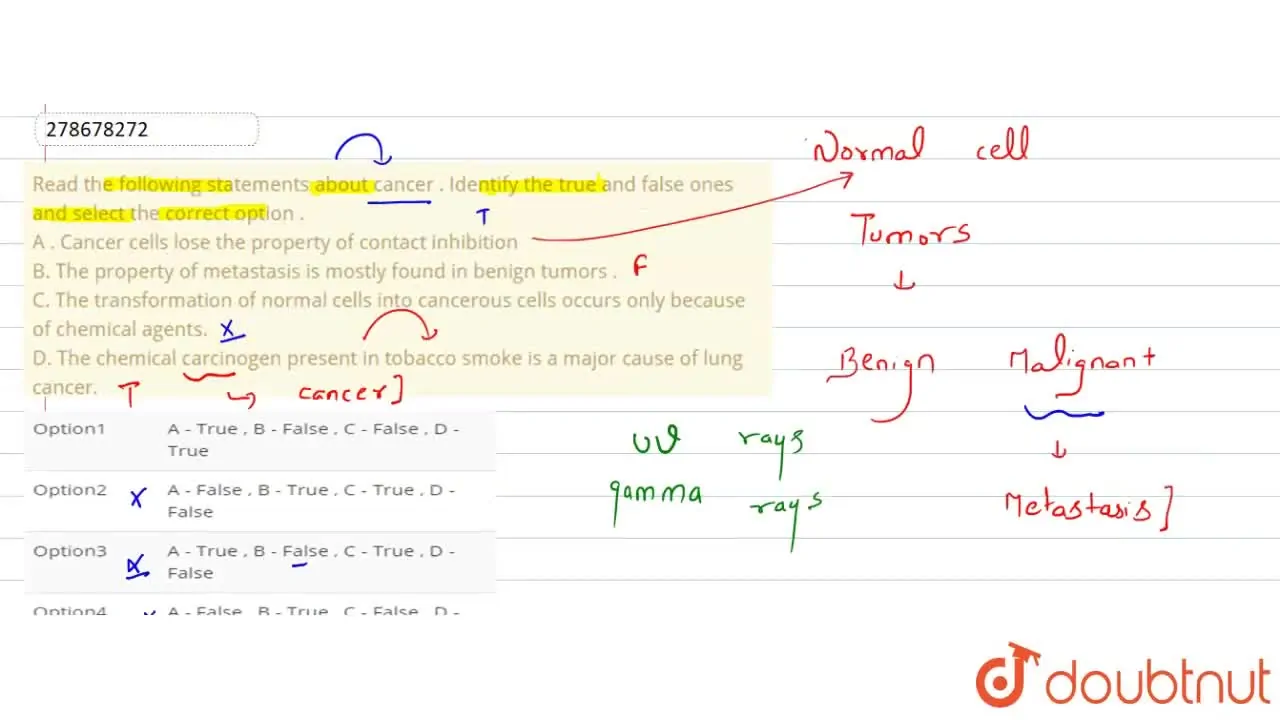 278678272
Read the following statements about cancer . Identify the true and false ones
and select the correct option .
T
A . Cancer cells lose the property of contact inhibition
B. The property of metastasis is mostly found in benign tumors . F
C. The transformation of normal cells into cancerous cells occurs only because
of chemical agents. X
D. The chemical carcinogen present in tobacco smoke is a major cause of lung
cancer. T
cancer]
Option1 A - True , B - False , C - False , D -
True
Option2 X A - False , B - True , C - True , D -
False
Option3 X A - True , B - False , C - True , D -
False
Option4 A - False , B - True , C - False , D -
Normal cell
Tumors
↓
Benign Malignant
↓
Metastasis]
UV rays
gamma rays
doubtnut